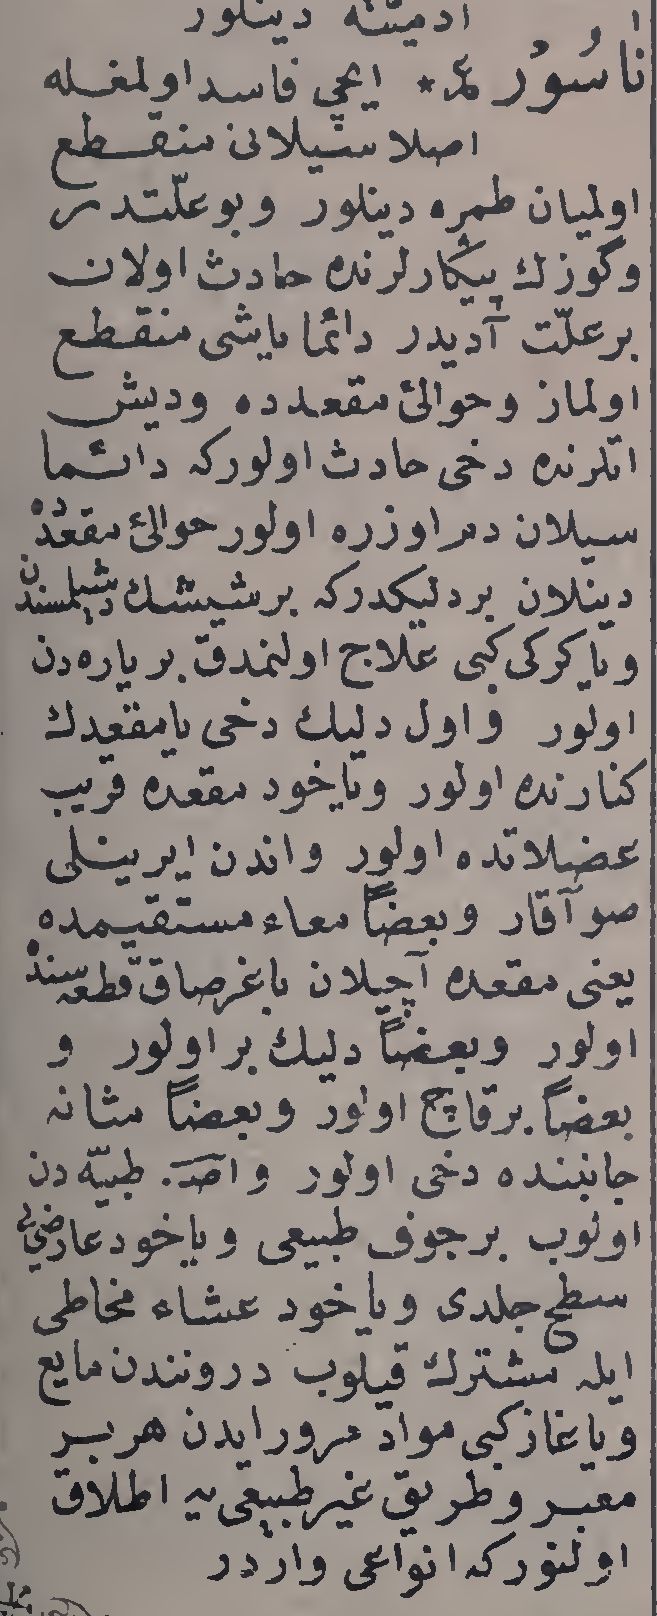 ادمیته دینلور
ناسُور ع * ایچی فاسد اولمغله
اصلا سیلانی منقطع
اولمیان طمره دینلور وبو علّتدر
وگوزك پیکارلرنده حادث اولان
بر علّت آدیدر دائما یاشی منقطع
اولماز وحوالئ مقعدده ودیش
اتلرنده دخی حادث اولورکه دائما
سیلان دم اوزره اولور حوالئ مقعدده
دینلان بر دلیکدرکه بر شیشك دشیلمسندن
ویا کرکی کبی علاج اولنمدق بر یاره دن
اولور واول دلیك دخی یا مقعدك
کنارنده اولور ویاخود مقعده قریب
عضلاتده اولور واندن ایرینلی
صو آقار وبعضاً معاء مستقیمده
یعنی مقعده آچیلان باغرصاق قطعه سنده
اولور وبعضاً دلیك بر اولور و
بعضاً بر قاچ اولور وبعضاً مثانه
جانبنده دخی اولور و طبیّه دن
اولوب بر جوف طبیعی ویاخود عارضی
سطح جلدی ویاخود غشاء مخاطی
ایله مشترك قیلوب دروندن مایع
ویا غاز کبی مواد مرور ایدن هر بر
معبر وطریق غیر طبیعی یه اطلاق
اولنورکه انواعی واردر